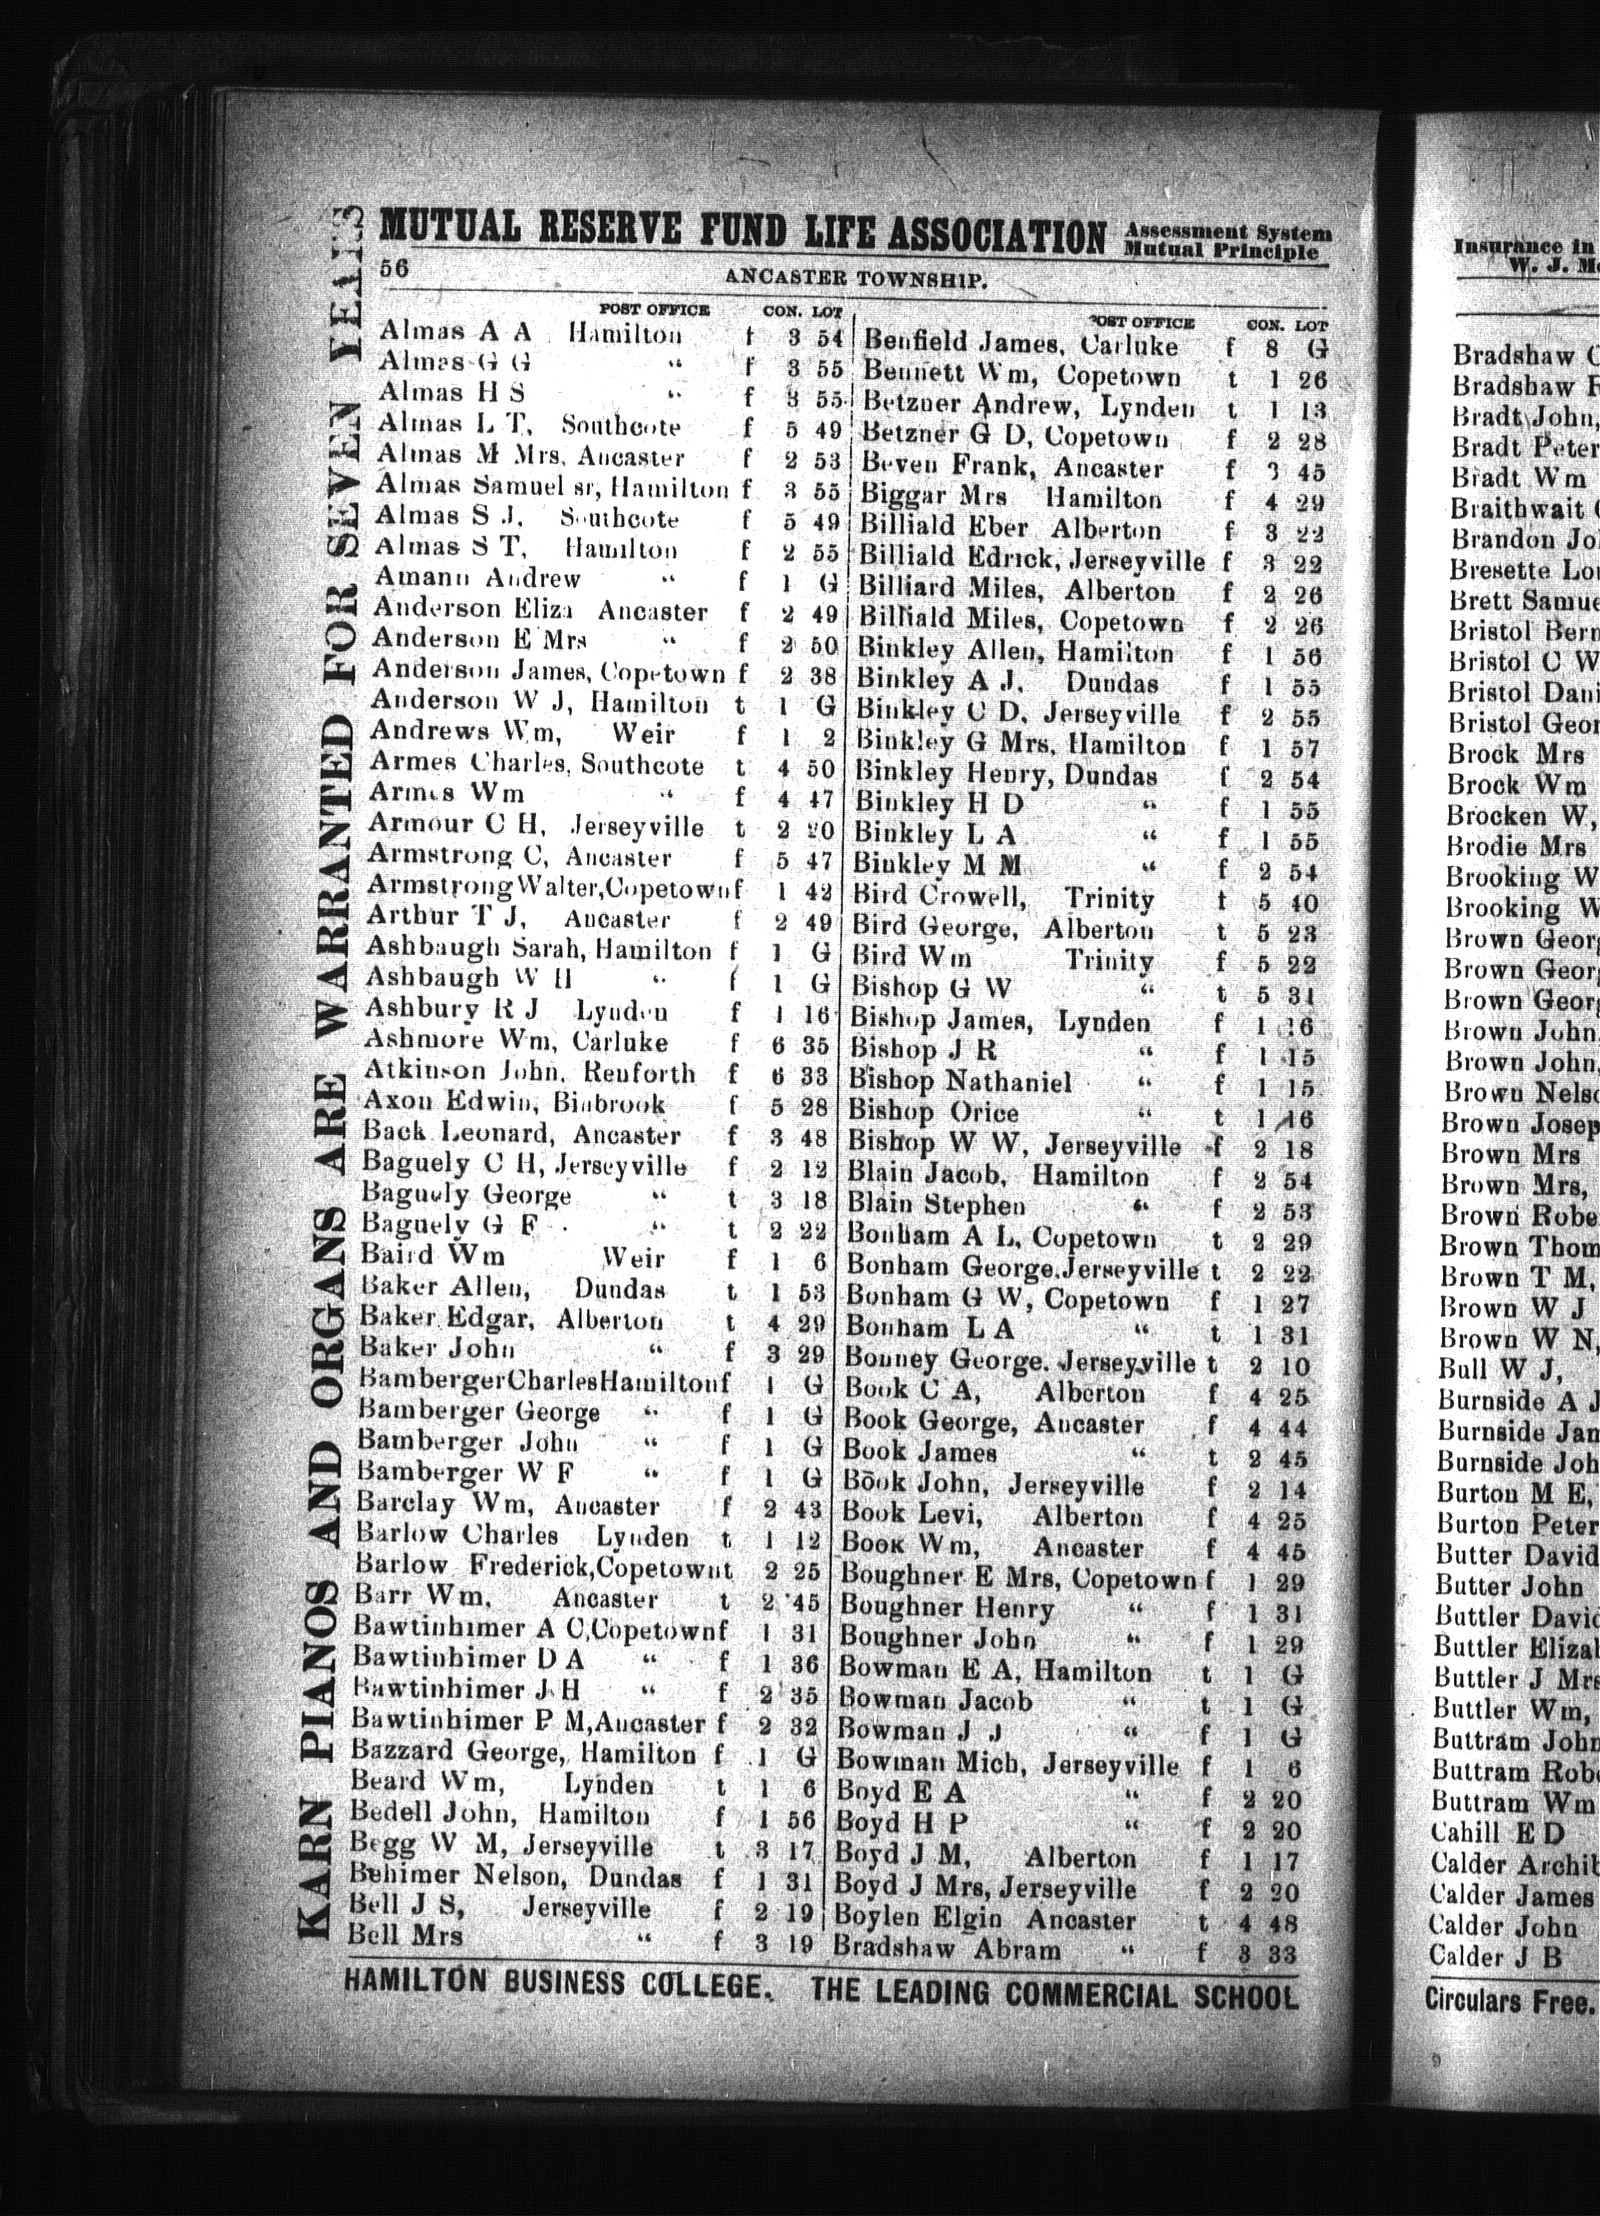 MUTUAL RESERVE FUND LIFE ASSOCIATION Assessment System
Mutual Principle
56 ANCASTER TOWNSHIP.
KARN PIANOS AND ORGANS ARE WARRANTED FOR SEVEN YEARS
POST OFFICE CON. LOT
Almas A A Hamilton f 3 54
Almas G G “ f 3 55
Almas H S “ f 3 55
Almas L T, Southcote f 5 49
Almas M Mrs, Ancaster f 2 53
Almas Samuel sr, Hamilton f 3 55
Almas S J, Southcote f 5 49
Almas S T, Hamilton f 2 55
Amann Andrew “ f 1 G
Anderson Eliza Ancaster f 2 49
Anderson E Mrs “ f 2 50
Anderson James, Copetown f 2 38
Anderson W J, Hamilton t 1 G
Andrews Wm, Weir f 1 2
Armes Charles, Southcote t 4 50
Armes Wm “ f 4 47
Armour C H, Jerseyville t 2 20
Armstrong C, Ancaster f 5 47
Armstrong Walter, Copetown f 1 42
Arthur T J, Ancaster f 2 49
Ashbaugh Sarah, Hamilton f 1 G
Ashbaugh W H “ f 1 G
Ashbury R J Lynden f 1 16
Ashmore Wm, Carluke f 6 35
Atkinson John, Renforth f 6 33
Axon Edwin, Binbrook f 5 28
Back Leonard, Ancaster f 3 48
Baguely C H, Jerseyville f 2 12
Baguely George “ t 3 18
Baguely G F “ t 2 22
Baird Wm Weir f 1 6
Baker Allen, Dundas t 1 53
Baker Edgar, Alberton t 4 29
Baker John “ f 3 29
Bamberger Charles Hamilton f 1 G
Bamberger George “ f 1 G
Bamberger John “ f 1 G
Bamberger W F “ f 1 G
Barclay Wm, Ancaster f 2 43
Barlow Charles Lynden t 1 12
Barlow Frederick, Copetown t 2 25
Barr Wm, Ancaster t 2 45
Bawtinhimer A C, Copetown f 1 31
Bawtinhimer D A “ f 1 36
Bawtinhimer J H “ f 2 35
Bawtinhimer P M, Ancaster f 2 32
Bazzard George, Hamilton f 1 G
Beard Wm, Lynden t 1 6
Bedell John, Hamilton f 1 56
Begg W M, Jerseyville t 3 17
Behimer Nelson, Dundas f 1 31
Bell J S, Jerseyville f 2 19
Bell Mrs “ f 3 19
POST OFFICE CON. LOT
Benfield James, Carluke f 8 G
Bennett Wm, Copetown t 1 26
Betzner Andrew, Lynden t 1 13
Betzner G D, Copetown f 2 28
Beven Frank, Ancaster f 3 45
Biggar Mrs Hamilton f 4 29
Billiald Eber Alberton f 3 22
Billiald Edrick, Jerseyville f 3 22
Billiard Miles, Alberton f 2 26
Billiald Miles, Copetown f 2 26
Binkley Allen, Hamilton f 1 56
Binkley A J, Dundas f 1 55
Binkley C D, Jerseyville f 2 55
Binkley G Mrs, Hamilton f 1 57
Binkley Henry, Dundas f 2 54
Binkley H D “ f 1 55
Binkley L A “ f 1 55
Binkley M M “ f 2 54
Bird Crowell, Trinity t 5 40
Bird George, Alberton t 5 23
Bird Wm Trinity f 5 22
Bishop G W “ t 5 31
Bishop James, Lynden f 1 16
Bishop J R “ f 1 15
Bishop Nathaniel “ f 1 15
Bishop Orice “ t 1 16
Bishop W W, Jerseyville f 2 18
Blain Jacob, Hamilton f 2 54
Blain Stephen “ f 2 53
Bonham A L, Copetown t 2 29
Bonham George, Jerseyville t 2 22
Bonham G W, Copetown f 1 27
Bonham L A “ t 1 31
Bonney George. Jerseyville t 2 10
Book C A, Alberton f 4 25
Book George, Ancaster f 4 44
Book James “ t 2 45
Book John, Jerseyville f 2 14
Book Levi, Alberton f 4 25
Book Wm, Ancaster f 4 45
Boughner E Mrs, Copetown f 1 29
Boughner Henry “ f 1 31
Boughner John “ f 1 29
Bowman E A, Hamilton t 1 G
Bowman Jacob “ t 1 G
Bowman J J “ f 1 G
Bowman Mich, Jerseyville f 1 6
Boyd E A “ f 2 20
Boyd H P “ f 2 20
Boyd J M, Alberton f 1 17
Boyd J Mrs, Jerseyville f 2 20
Boylen Elgin Ancaster t 4 48
Bradshaw Abram “ f 3 33
HAMILTON BUSINESS COLLEGE. THE LEADING COMMERCIAL SCHOOL
Insurance in
W. J.
Bradshaw
Bradshaw
Bradt John,
Bradt Peter
Bradt Wm
Braithwait
Brandon
Bresette
Brett
Bristol
Bristol C W
Bristol
Bristol
Brock Mrs
Brock Wm
Brocken W,
Brodie Mrs
Brooking W
Brooking W
Brown
Brown
Brown
Brown John,
Brown John,
Brown
Brown
Brown Mrs
Brown Mrs,
Brown
Brown
Brown T M,
Brown W J
Brown W N,
Bull W J,
Burnside A J
Burnside
Burnside
Burton M E,
Burton Peter
Butter David
Butter John
Buttler David
Buttler
Buttler J Mrs
Buttler Wm,
Buttram John
Buttram
Buttram Wm
Cahill E D
Calder
Calder James
Calder John
Calder J B
Circulars Free.